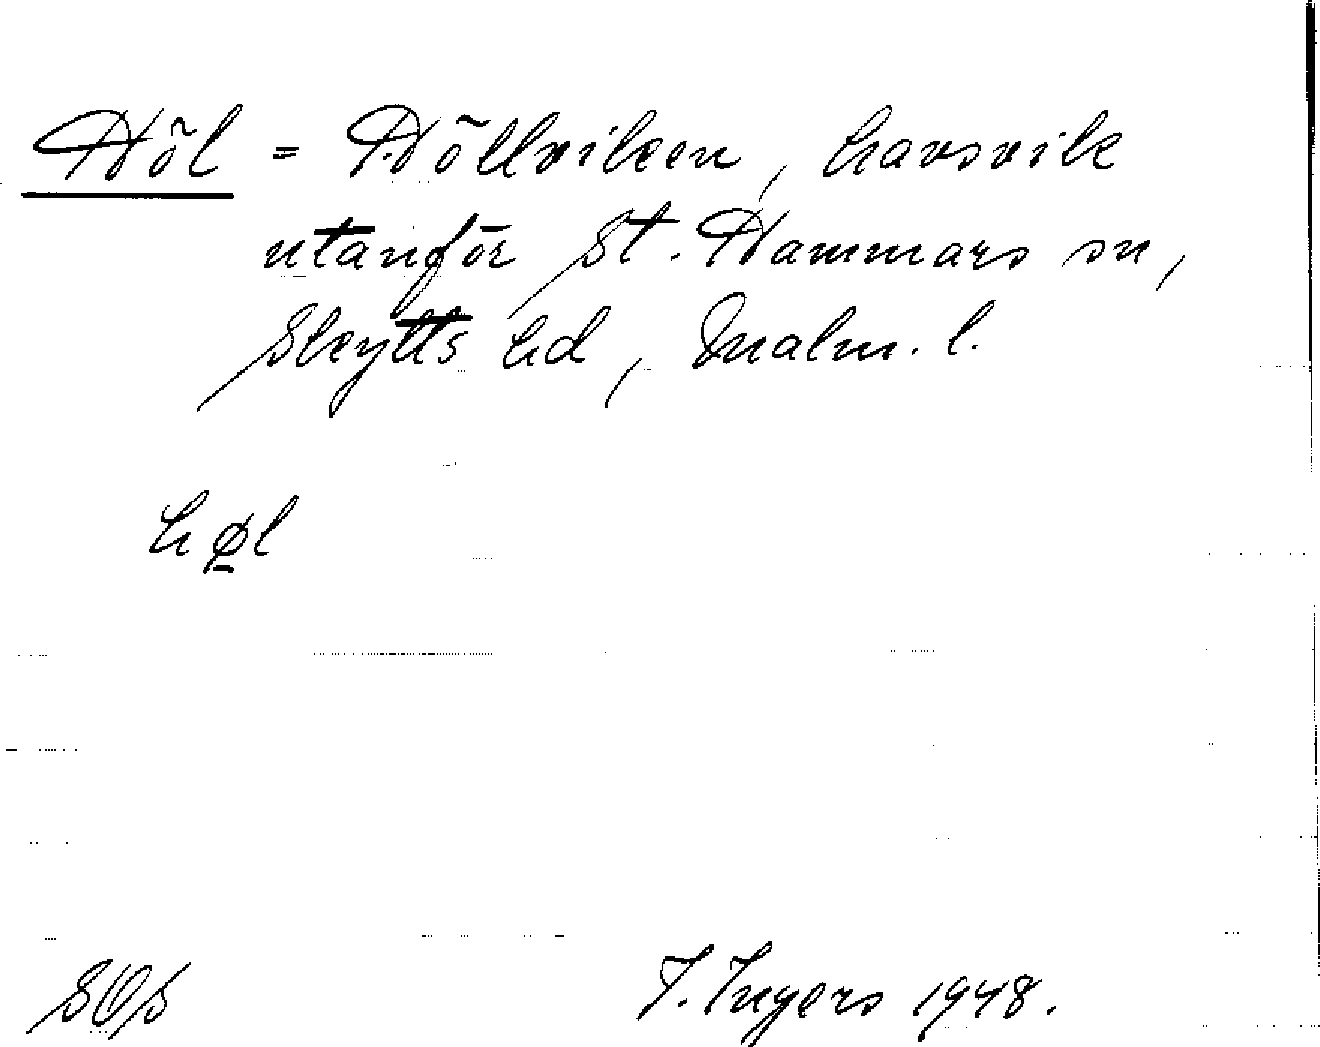 Höl = Höllviken, havsvik
utanför St. Hammars sn,
Skytts hd, Malm. l.
hø̠l
SOS I. Ingers 1948.